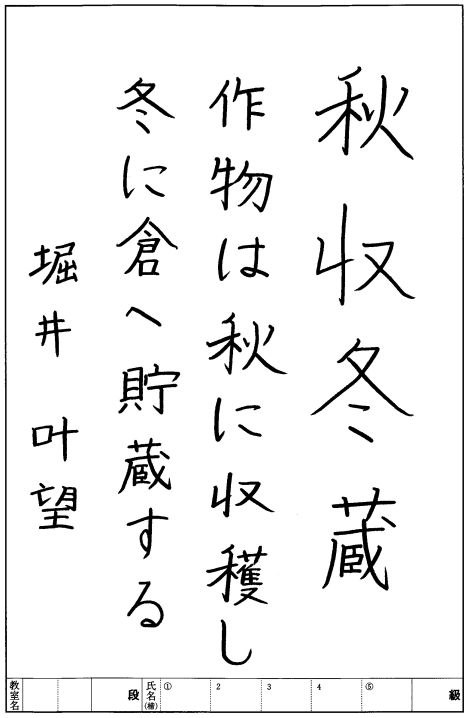 秋収冬蔵
作物は秋に収穫し
冬に倉へ貯蔵する
堀井 叶望
級
⑤
4
3
2
①
氏名(楷)
段
教室名